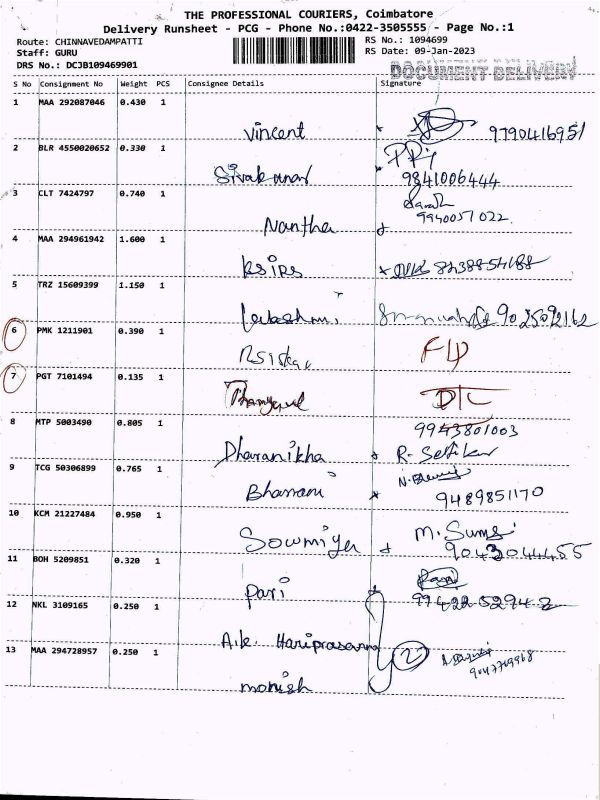 THE PROFESSIONAL COURIERS, Coimbatore
Delivery Runsheet - PCG - Phone No.:0422-3505555 - Page No.:1
Route: CHINNAVEDAMPATTI RS No.: 1094699
Staff: GURU RS Date: 09-Jan-2023
DRS No.: DCJB109469901 DOCUMENT DELIVERY
S No Consignment No Weight PCS Consignee Details Signature
1 MAA 292087046 0.430 1
Vincent 9790416951
2 BLR 4550020652 0.330 1
Sivakumar 9841006444
3 CLT 7424797 0.740 1
Nantha 9940051022
4 MAA 294961942 1.600 1
KSIRS
5 TRZ 15609399 1.150 1
6 PMK 1211901 0.390 1
7 PGT 7101494 0.135 1
DTC
8 MTP 5003490 0.805 1
9943801003
Dharanikha
9 TCG 50306899 0.765 1
Bhavani 9489851170
10 KCM 21227484 0.950 1
Sowmiya M. Sumi
9043044455
11 BOH 5209851 0.320 1
Pari
12 NKL 3109165 0.250 1
A.K. Hariprasanna
13 MAA 294728957 0.250 1
2
monish